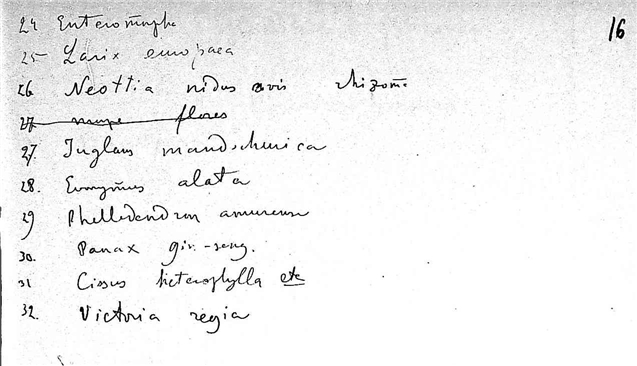 16
24 Enteromorpha
25 Larix europaea
26 Neottia nidus avis rhizom.
27 flores
27. Juglans mandschurica
28. Evonymus alata
29 Phellodendron amurense
30. Panax gin-seng.
31 Cissus heterophylla etc
32. Victoria regia